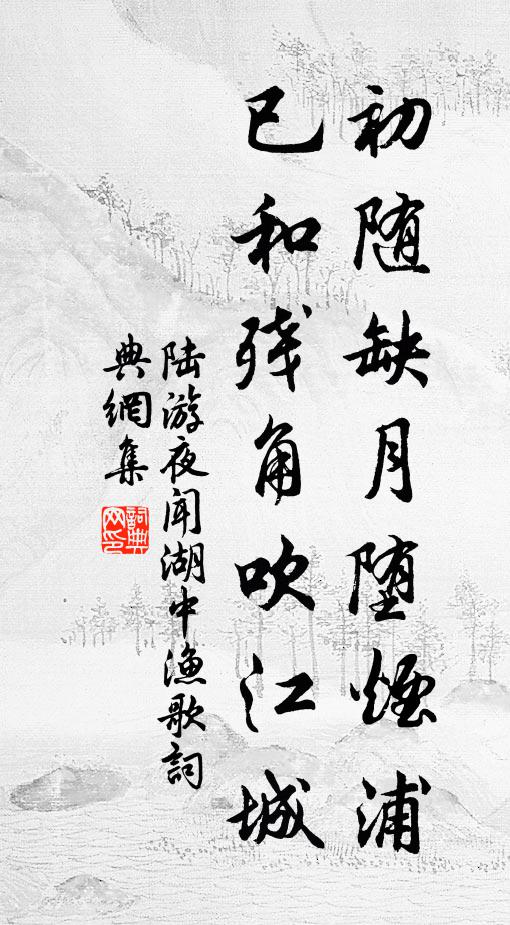 初随缺月堕烟浦
已和残角吹江城
陆游夜闻湖中渔歌詞
典網集
詞典网印